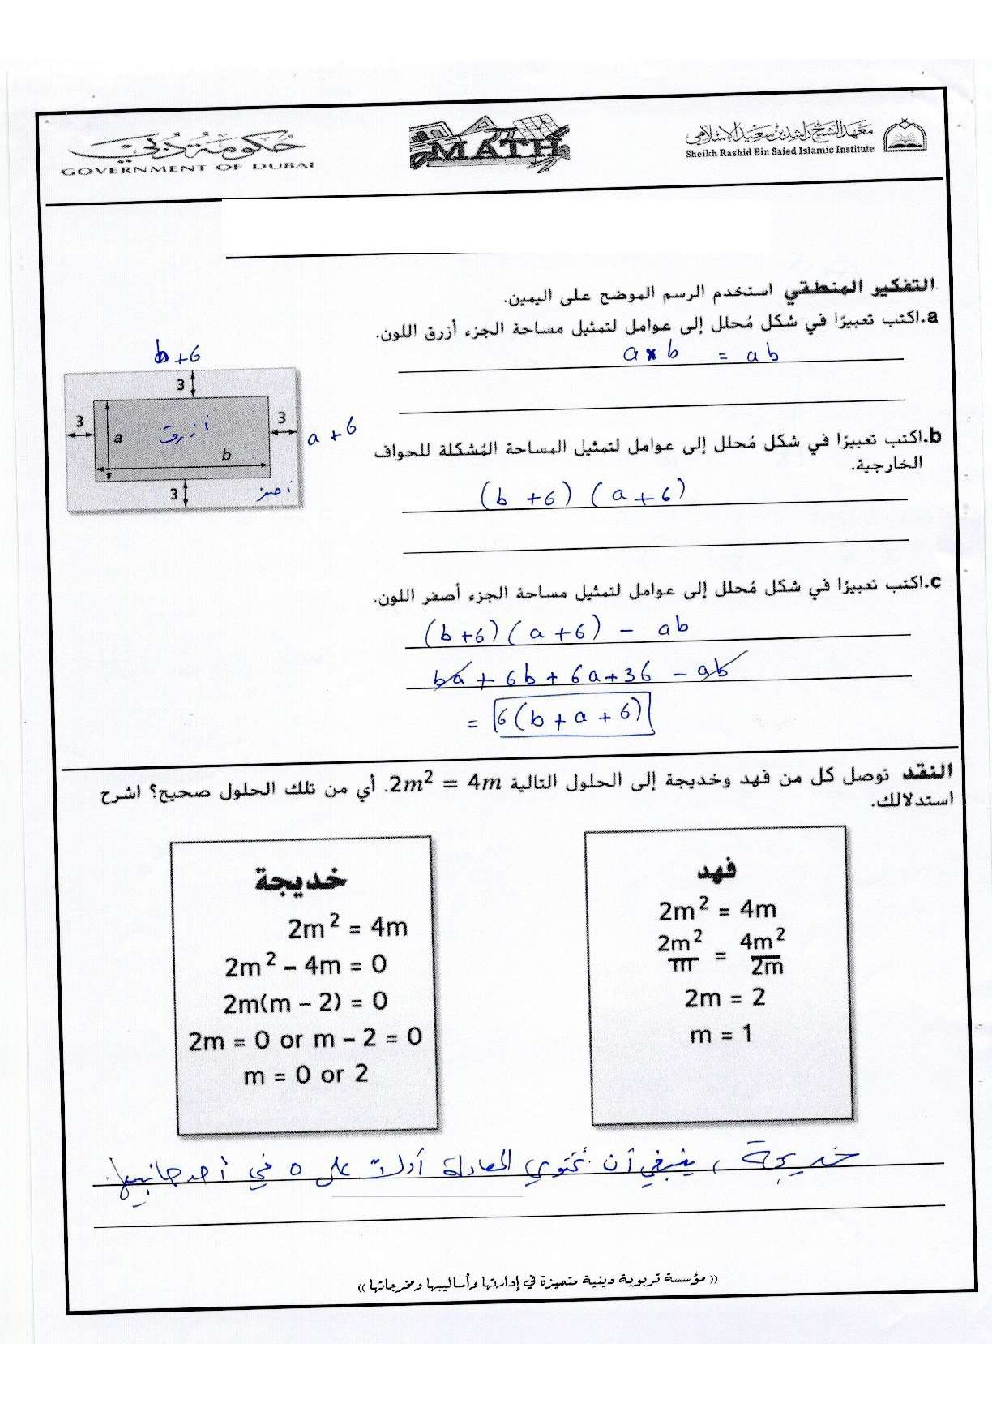 حكومة دبي
GOVERNMENT OF DUBAI
MATH
معهد الشيخ راشد بن سعيد الإسلامي
Sheikh Rashid Bin Saied Islamic Institute
التفكير المنطقي استخدم الرسم الموضح على اليمين.
a.اكتب تعبيرًا في شكل مُحلل إلى عوامل لتمثيل مساحة الجزء أزرق اللون.
a × b = ab
b+6
3
3
3
a
أزرق
b
a + 6
3
أصفر
b.اكتب تعبيرًا في شكل مُحلل إلى عوامل لتمثيل المساحة المُشكلة للحواف
الخارجية.
(b +6) (a+6)
c.اكتب تعبيرًا في شكل مُحلل إلى عوامل لتمثيل مساحة الجزء أصفر اللون.
(b+6)(a+6) - ab
ba + 6b + 6a+36 - ab
= 6(b+a+6)
النقد توصل كل من فهد وخديجة إلى الحلول التالية 2m² = 4m. أي من تلك الحلول صحيح؟ اشرح
استدلالك.
فهد
2m² = 4m
2m²/m = 4m²/2m
2m = 2
m = 1
خديجة
2m² = 4m
2m² – 4m = 0
2m(m – 2) = 0
2m = 0 or m – 2 = 0
m = 0 or 2
خديجة ، ينبغي أن تحتوي المعادلة أولاً على 0 في أحد جانبيها.
(( مؤسسة تربوية دينية متميزة في إدارتها وأساليبها ومخرجاتها ))